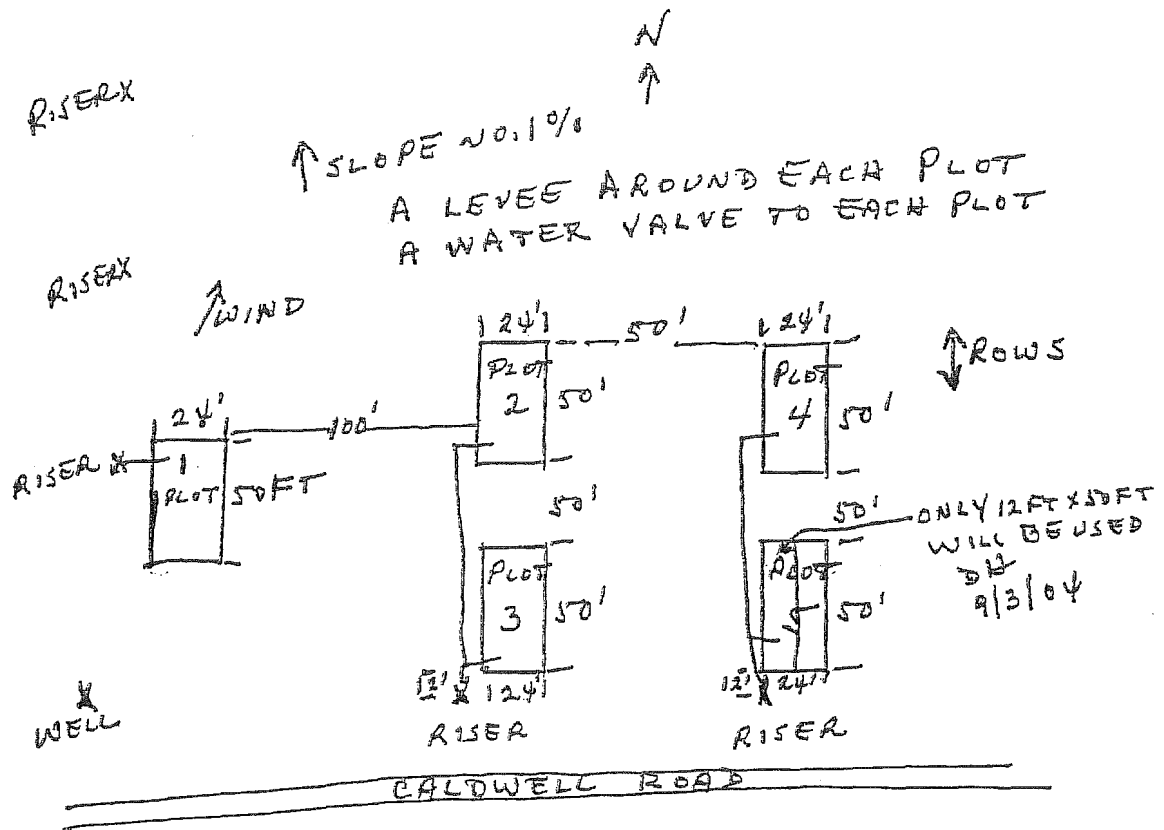 N
RISER X
SLOPE NO.1%
A LEVEE AROUND EACH PLOT
A WATER VALVE TO EACH PLOT
RISER X
WIND
24'
50'
24'
ROWS
PLOT
2
50'
PLOT
4
50'
24'
100'
RISER X
1
PLOT
50FT
50'
50'
ONLY 12FT X 50FT
WILL BE USED
DH
9/3/04
PLOT
3
50'
PLOT
50'
12' X 24'
RISER
12' X 24'
RISER
X
WELL
CALDWELL ROAD